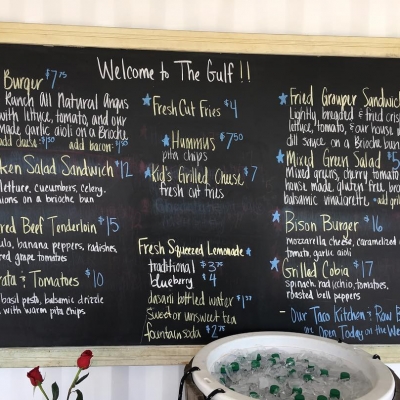 Welcome to The Gulf!!
Burger $7.75
Ranch All Natural Angus
with lettuce, tomato, and our
made garlic aioli on a Brioche
add bacon: $1.50
Salad Sandwich $12
lettuce, cucumbers, celery,
on a brioche bun
Beef Tenderloin $15
banana peppers, radishes,
grape tomatoes
& Tomatoes $10
basil pesto, balsamic drizzle
with warm pita chips
Fresh Cut Fries $4
Hummus $7.50
pita chips
Kid's Grilled Cheese $7
fresh cut fries
Fresh Squeezed Lemonade
traditional $3.75
blueberry $4
dasani bottled water
Sweet or unsweet tea
fountain soda $2.75
Fried Grouper Sandwich
Lightly breaded & fried crisp
lettuce, tomato, & our house
dill sauce on a Brioche bun
Mixed Green Salad $5
Mixed greens, cherry tomato
house made gluten free
balsamic vinaigrette
Bison Burger $16
mozzarella cheese, caramelized
tomato, garlic aioli
Grilled Cobia $17
spinach, radicchio, tomatoes,
roasted bell peppers
- Our Taco Kitchen & Raw B
Open Today on the We